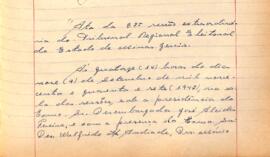 "Acta da 85ª sessão extraordina
ria do Tribunal Regional Eleitoral
do Estado de Minas Gerais
Às quatorze (14) horas do dia
nove (9) de Setembro de mil nove
centos e quarenta e sete (1947), na sa
la das sessões, sob a presidencia do
Exmo. Sr. Desembargador José Alcides
Pereira, e com a presença do Exmo. Sr.
Des. Walfrido Andrade, Des.